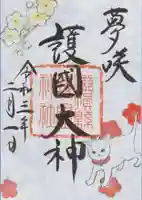 夢咲
護國大神
令和三年
二月一日